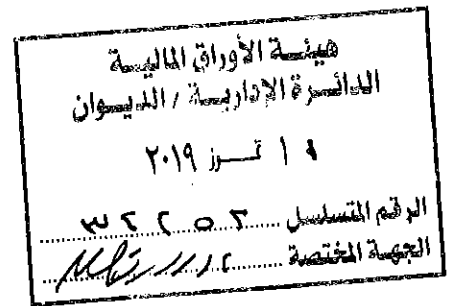 هيئة الأوراق المالية
الدائرة الإدارية / الديوان
١٠ تموز ٢٠١٩
الرقم المتسلسل ٣٢٢٥٢
الجهة المختصة